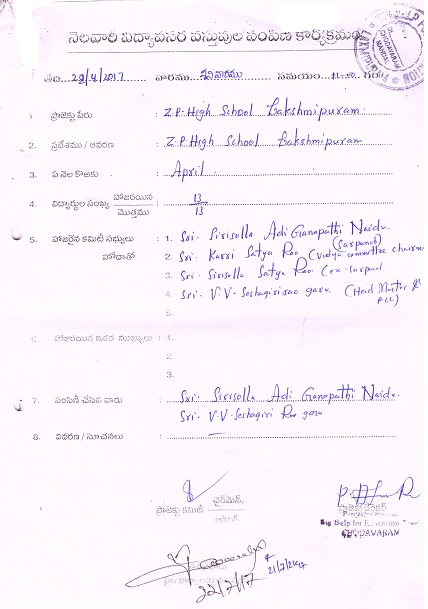 నెలవారీ విద్యావసర వస్తువుల పంపిణి కార్యక్రమం
తేది 29/4/2017 వారము శనివారము సమయం
1. ప్రాజెక్టు పేరు : Z.P. High School Lakshmipuram
2. ప్రదేశము / ఆవరణ : Z.P. High School Lakshmipuram
3. ఏ నెల కొఱకు : April
4. విద్యార్థుల సంఖ్య హాజరయిన / మొత్తము : 13 / 13
5. హాజరైన కమిటీ సభ్యులు : 1. Sri. Sirisolla Adi Ganapathi Naidu.
(Sarpanch)
హోదాతో 2. Sri. Karri Satya Rao (Vidya committee chairman
3. Sri. Sirisolla Satya Rao (ex-sarpanch
4. Sri. V.V. Seshagirirao garu. (Head Master &
5.
6. హాజరయిన ఇతర ముఖ్యులు : 1.
2.
3.
7. పంపిణీ చేసిన వారు : Sri. Sirisolla Adi Ganapathi Naidu.
Sri. V.V. Seshagiri Rao garu
8. వివరణ / సూచనలు :
ప్రాజెక్టు కమిటీ చైర్‌మెన్.
ప్రాజెక్టు డైరెక్టర్
Big Help for Education
CHODAVARAM
21/7/2017
22/7/17